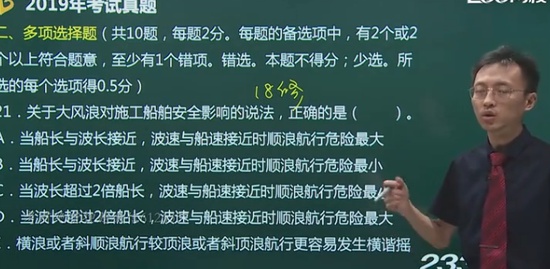 2019年考试真题
二、多项选择题（共10题，每题2分。每题的备选项中，有2个或2
个以上符合题意，至少有1个错项。错选。本题不得分；少选。所
选的每个选项得0.5分）
18分
21．关于大风浪对施工船舶安全影响的说法，正确的是（　　）。
A．当船长与波长接近，波速与船速接近时顺浪航行危险最大
B．当船长与波长接近，波速与船速接近时顺浪航行危险最小
C．当波长超过2倍船长，波速与船速接近时顺浪航行危险最
D．当波长超过2倍船长，波速与船速接近时顺浪航行危险最大
．横浪或者斜顺浪航行较顶浪或者斜顶浪航行更容易发生横谐摇
23